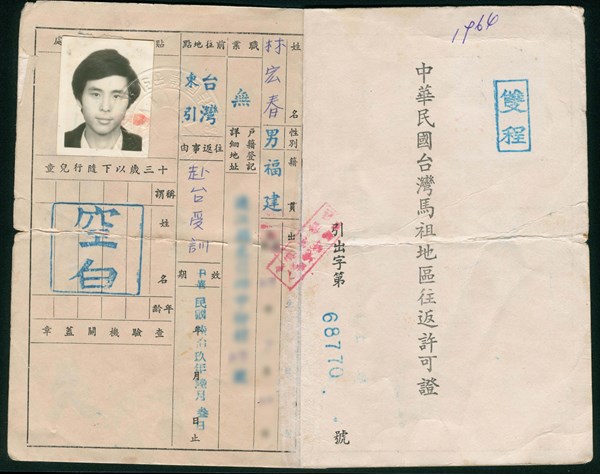 雙程
中華民國台灣馬祖地區往返許可證
引出字第 68770. 號
姓名
林宏春
性別
男
籍貫
福建
出
職業
無
戶籍登記
詳細地址
前往地點
台灣
東引
往返事由
赴台受訓
效期
中華民國
拾玖年
月
日止
貼
處
十三歲以下隨行兒童
稱謂
姓名
年齡
空白
查驗機關蓋章